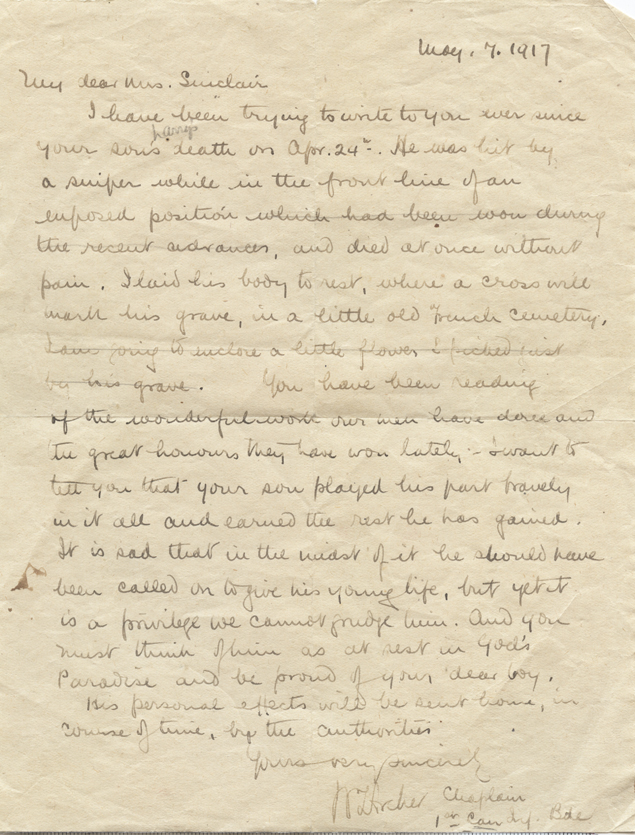 May. 7. 1917
My dear Mrs. Sinclair
I have been trying to write to you ever since
your son's death on Apr. 24th. He was hit by
a sniper while in the front line of an
exposed position which had been won during
the recent advances, and died at once without
pain. I laid his body to rest, where a cross will
mark his grave, in a little old French cemetery.
I am going to enclose a little flower I picked just
by his grave. You have been reading
of the wonderful work our men have done and
the great honours they have won lately - I want to
tell you that your son played his part bravely
in it all and earned the rest he has gained.
It is sad that in the midst of it he should have
been called on to give his young life, but yet it
is a privilege we cannot grudge him. And you
must think of him as at rest in God's
Paradise and be proud of your dear boy.
His personal effects will be sent home, in
course of time, by the authorities
Yours very sincerely
Archer Chaplain
1st Can. Bde